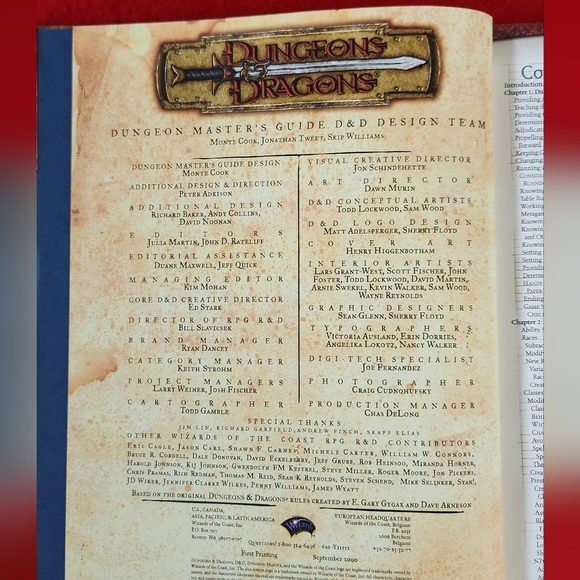 DUNGEONS
&
DRAGONS
DUNGEON MASTER'S GUIDE D&D DESIGN TEAM
MONTE COOK, JONATHAN TWEET, SKIP WILLIAMS
DUNGEON MASTER'S GUIDE DESIGN
MONTE COOK
ADDITIONAL DESIGN & DIRECTION
PETER ADKISON
ADDITIONAL DESIGN
RICHARD BAKER, ANDY COLLINS,
DAVID NOONAN
EDITORS
JULIA MARTIN, JOHN D. RATELIFF
EDITORIAL ASSISTANCE
DUANE MAXWELL, JEFF QUICK
MANAGING EDITOR
KIM MOHAN
CORE D&D CREATIVE DIRECTOR
ED STARK
DIRECTOR OF RPG R&D
BILL SLAVICSEK
BRAND MANAGER
RYAN DANCEY
CATEGORY MANAGER
KEITH STROHM
PROJECT MANAGERS
LARRY WEINER, JOSH FISCHER
CARTOGRAPHER
TODD GAMBLE
VISUAL CREATIVE DIRECTOR
JON SCHINDEHETTE
ART DIRECTOR
DAWN MURIN
D&D CONCEPTUAL ARTISTS
TODD LOCKWOOD, SAM WOOD
D&D LOGO DESIGN
MATT ADELSPERGER, SHERRY FLOYD
COVER ART
HENRY HIGGINBOTHAM
INTERIOR ARTISTS
LARS GRANT-WEST, SCOTT FISCHER, JOHN
FOSTER, TODD LOCKWOOD, DAVID MARTIN,
ARNIE SWEKEL, KEVIN WALKER, SAM WOOD,
WAYNE REYNOLDS
GRAPHIC DESIGNERS
SEAN GLENN, SHERRY FLOYD
TYPOGRAPHERS
VICTORIA AUSLAND, ERIN DORRIES,
ANGELIKA LOKOTZ, NANCY WALKER
DIGI-TECH SPECIALIST
JOE FERNANDEZ
PHOTOGRAPHER
CRAIG CUDNOHUFSKY
PRODUCTION MANAGER
CHAS DELONG
SPECIAL THANKS
JIM LIN, RICHARD GARFIELD, ANDREW FINCH, SKAFF ELIAS
OTHER WIZARDS OF THE COAST RPG R&D CONTRIBUTORS
ERIC CAGLE, JASON CARL, SHAWN F. CARNES, MICHELE CARTER, WILLIAM W. CONNORS,
BRUCE R. CORDELL, DALE DONOVAN, DAVID ECKELBERRY, JEFF GRUBB, ROB HEINSOO, MIRANDA HORNER,
HAROLD JOHNSON, KIJ JOHNSON, GWENDOLYN FM KESTREL, STEVE MILLER, ROGER MOORE, JON PICKENS,
CHRIS PRAMAS, RICH REDMAN, THOMAS M. REID, SEAN K REYNOLDS, STEVEN SCHEND, MIKE SELINKER, STAN!,
JD WIKER, JENNIFER CLARKE WILKES, PENNY WILLIAMS, JAMES WYATT
BASED ON THE ORIGINAL DUNGEONS & DRAGONS® RULES CREATED BY E. GARY GYGAX AND DAVE ARNESON
U.S., CANADA,
ASIA, PACIFIC, & LATIN AMERICA
Wizards of the Coast, Inc.
P.O. Box 707
Renton, WA 98057-0707
EUROPEAN HEADQUARTERS
Wizards of the Coast, Belgium
P.B. 2031
2600 Berchem
Belgium
+32-70-23-32-77
QUESTIONS? 1-800-324-6496
First Printing
September 2000
Introduction
Chapter 1:
Chapter 2: